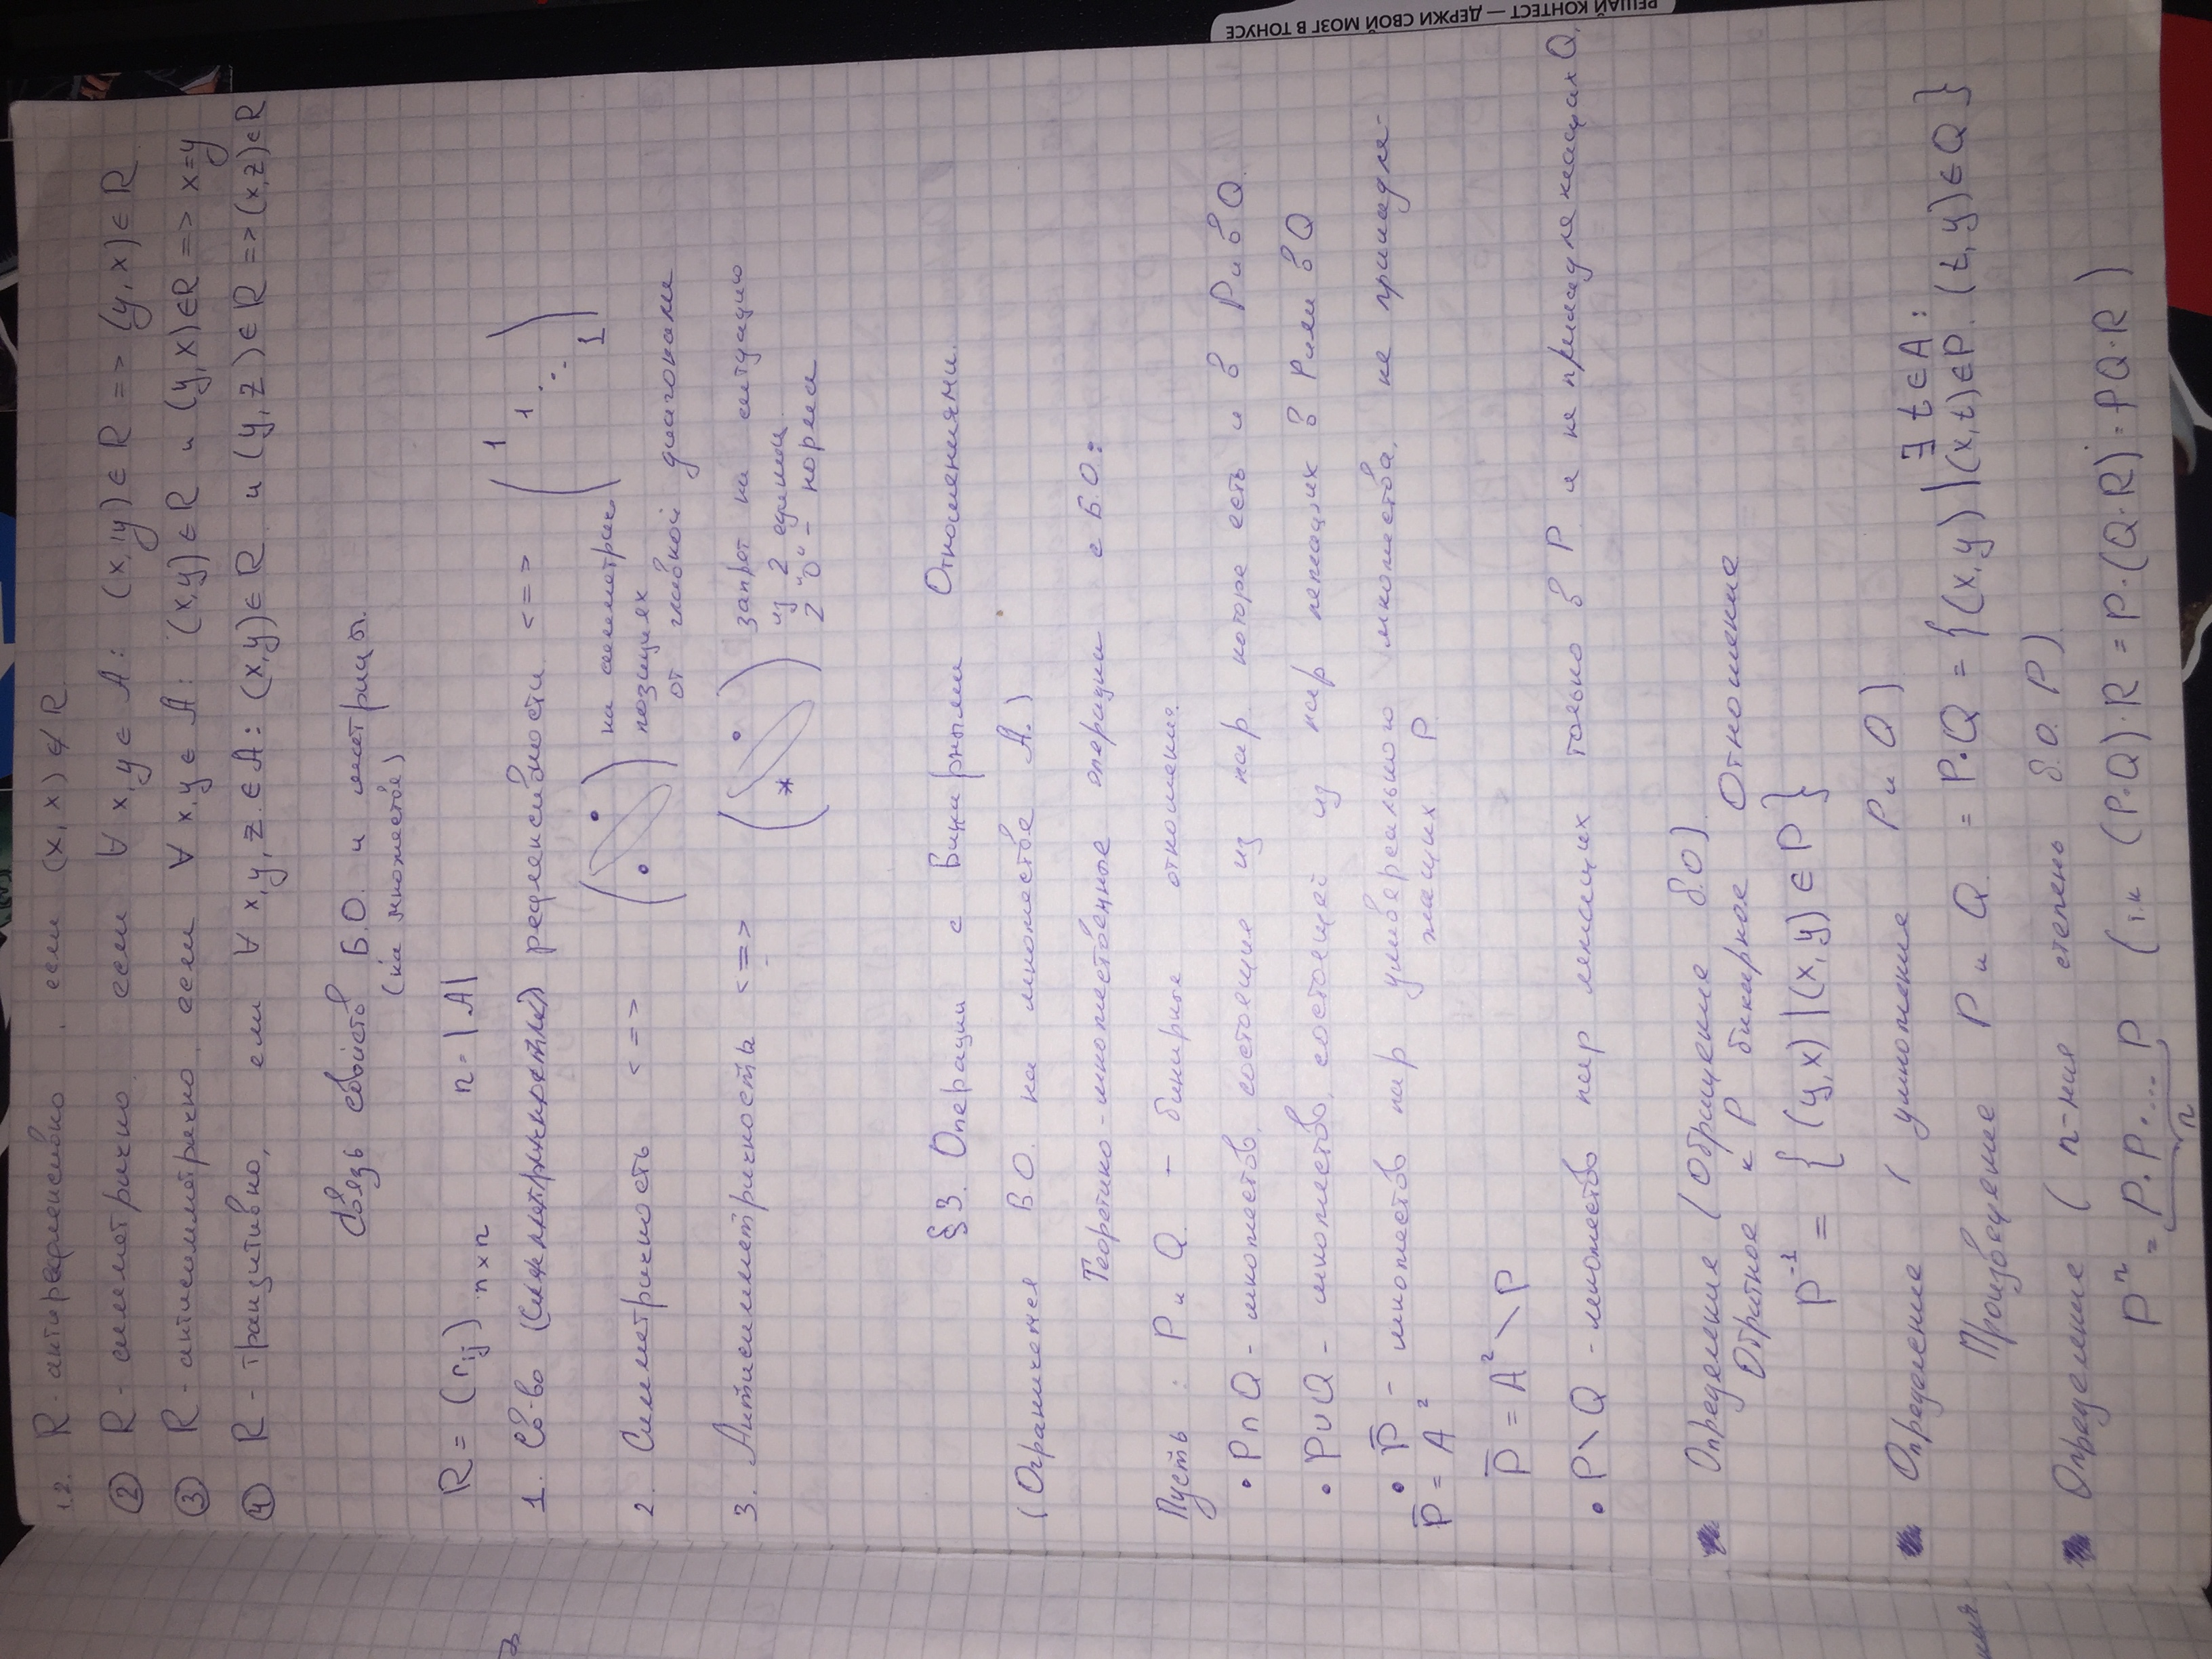 1.2. R - антирефлексивно, если (x, x) ∉ R
② R - симметрично, если ∀ x, y ∈ A: (x, y) ∈ R => (y, x) ∈ R
③ R - антисимметрично, если ∀ x, y ∈ A: (x, y) ∈ R и (y, x) ∈ R => x=y
④ R - транзитивно, если ∀ x, y, z ∈ A: (x, y) ∈ R и (y, z) ∈ R => (x, z) ∈ R
Связь свойств Б.О. и матрицы.
(на множестве)
R = (rij) n×n n = |A|
1. Св-во рефлексивности <=> ( 1 1 ⋱ 1 )
2. Симметричность <=> на симметрич.
позициях
от главной диагонали
3. Антисимметричность <=> запрет на ситуацию
из 2 единиц.
2 "0" - норма
§3. Операции с Бинарными Отношениями.
(Ограничемся Б.О. на множестве A.)
Теоретико-множественные операции с Б.О:
Пусть: P и Q. - бинарные отношение.
• P∩Q - множество, состоящие из пар которе есть и в P и в Q.
• P∪Q - множество, состоящей из пар лежащих в P или в Q
• P̅ - множество пар универсального множества, не принадле-
P̅ = A² жащих P.
P̅ = A² \ P
• P\Q - множество пар лежащих только в P и не принадлежащах Q.
Определение (Обращение б.О).
Обратное к P бинарное Отношение
P⁻¹ = { (y, x) | (x, y) ∈ P }
Определение ( умножение P и Q )
∃ t ∈ A :
Произведение P и Q. = P·Q = { (x, y) | (x, t) ∈ P. (t, y) ∈ Q }
Определение ( n-ная степень б.О. P).
Pⁿ = P·P·... P (т.к (P·Q)·R = P·(Q·R) = PQ·R )
n
РЕШАЙ КОНТЕСТ — ДЕРЖИ СВОЙ МОЗГ В ТОНУСЕ